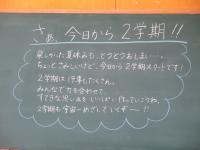 さぁ 今日から2学期!!
楽しかった夏休みも、とうとうおしまい…。
ちょっとさみしいけど、今日から2学期スタートです!
2学期は行事もたくさん。
みんなで力を合わせて
すてきな思い出をいっぱい作っていこうね。
2学期も宇宙一めざしていくぞー!!